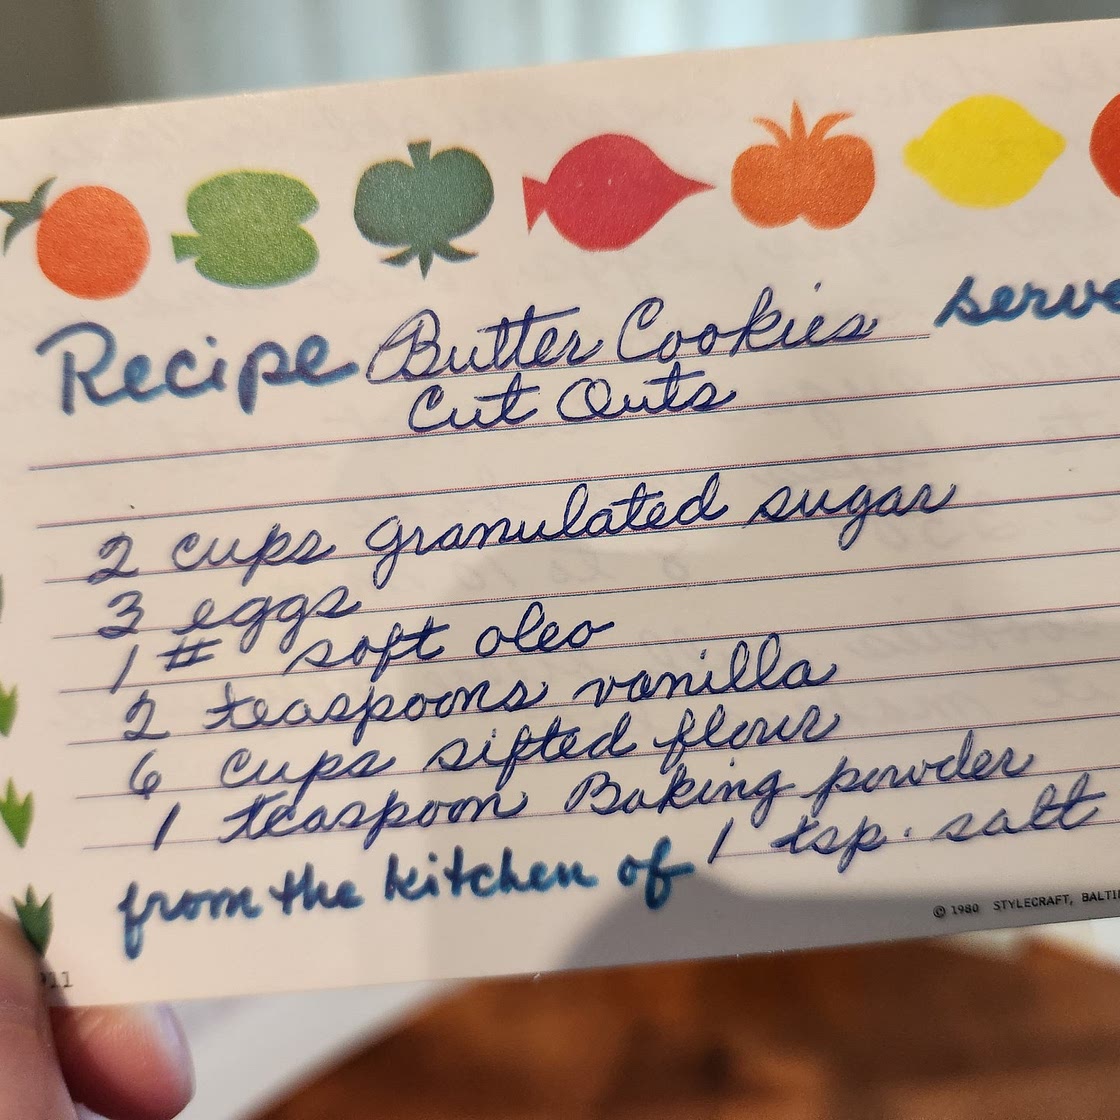 Recipe Butter Cookies serve
Cut Outs
2 cups granulated sugar
3 eggs
1 # soft oleo
2 teaspoons vanilla
6 cups sifted flour
1 teaspoon Baking powder
from the kitchen of 1 tsp. salt
© 1980 STYLECRAFT, BALTI
11